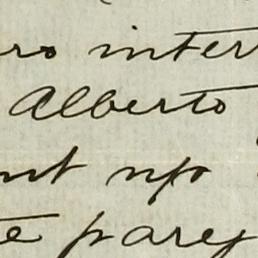 ro inter
Alberto
nt nfo
te parey